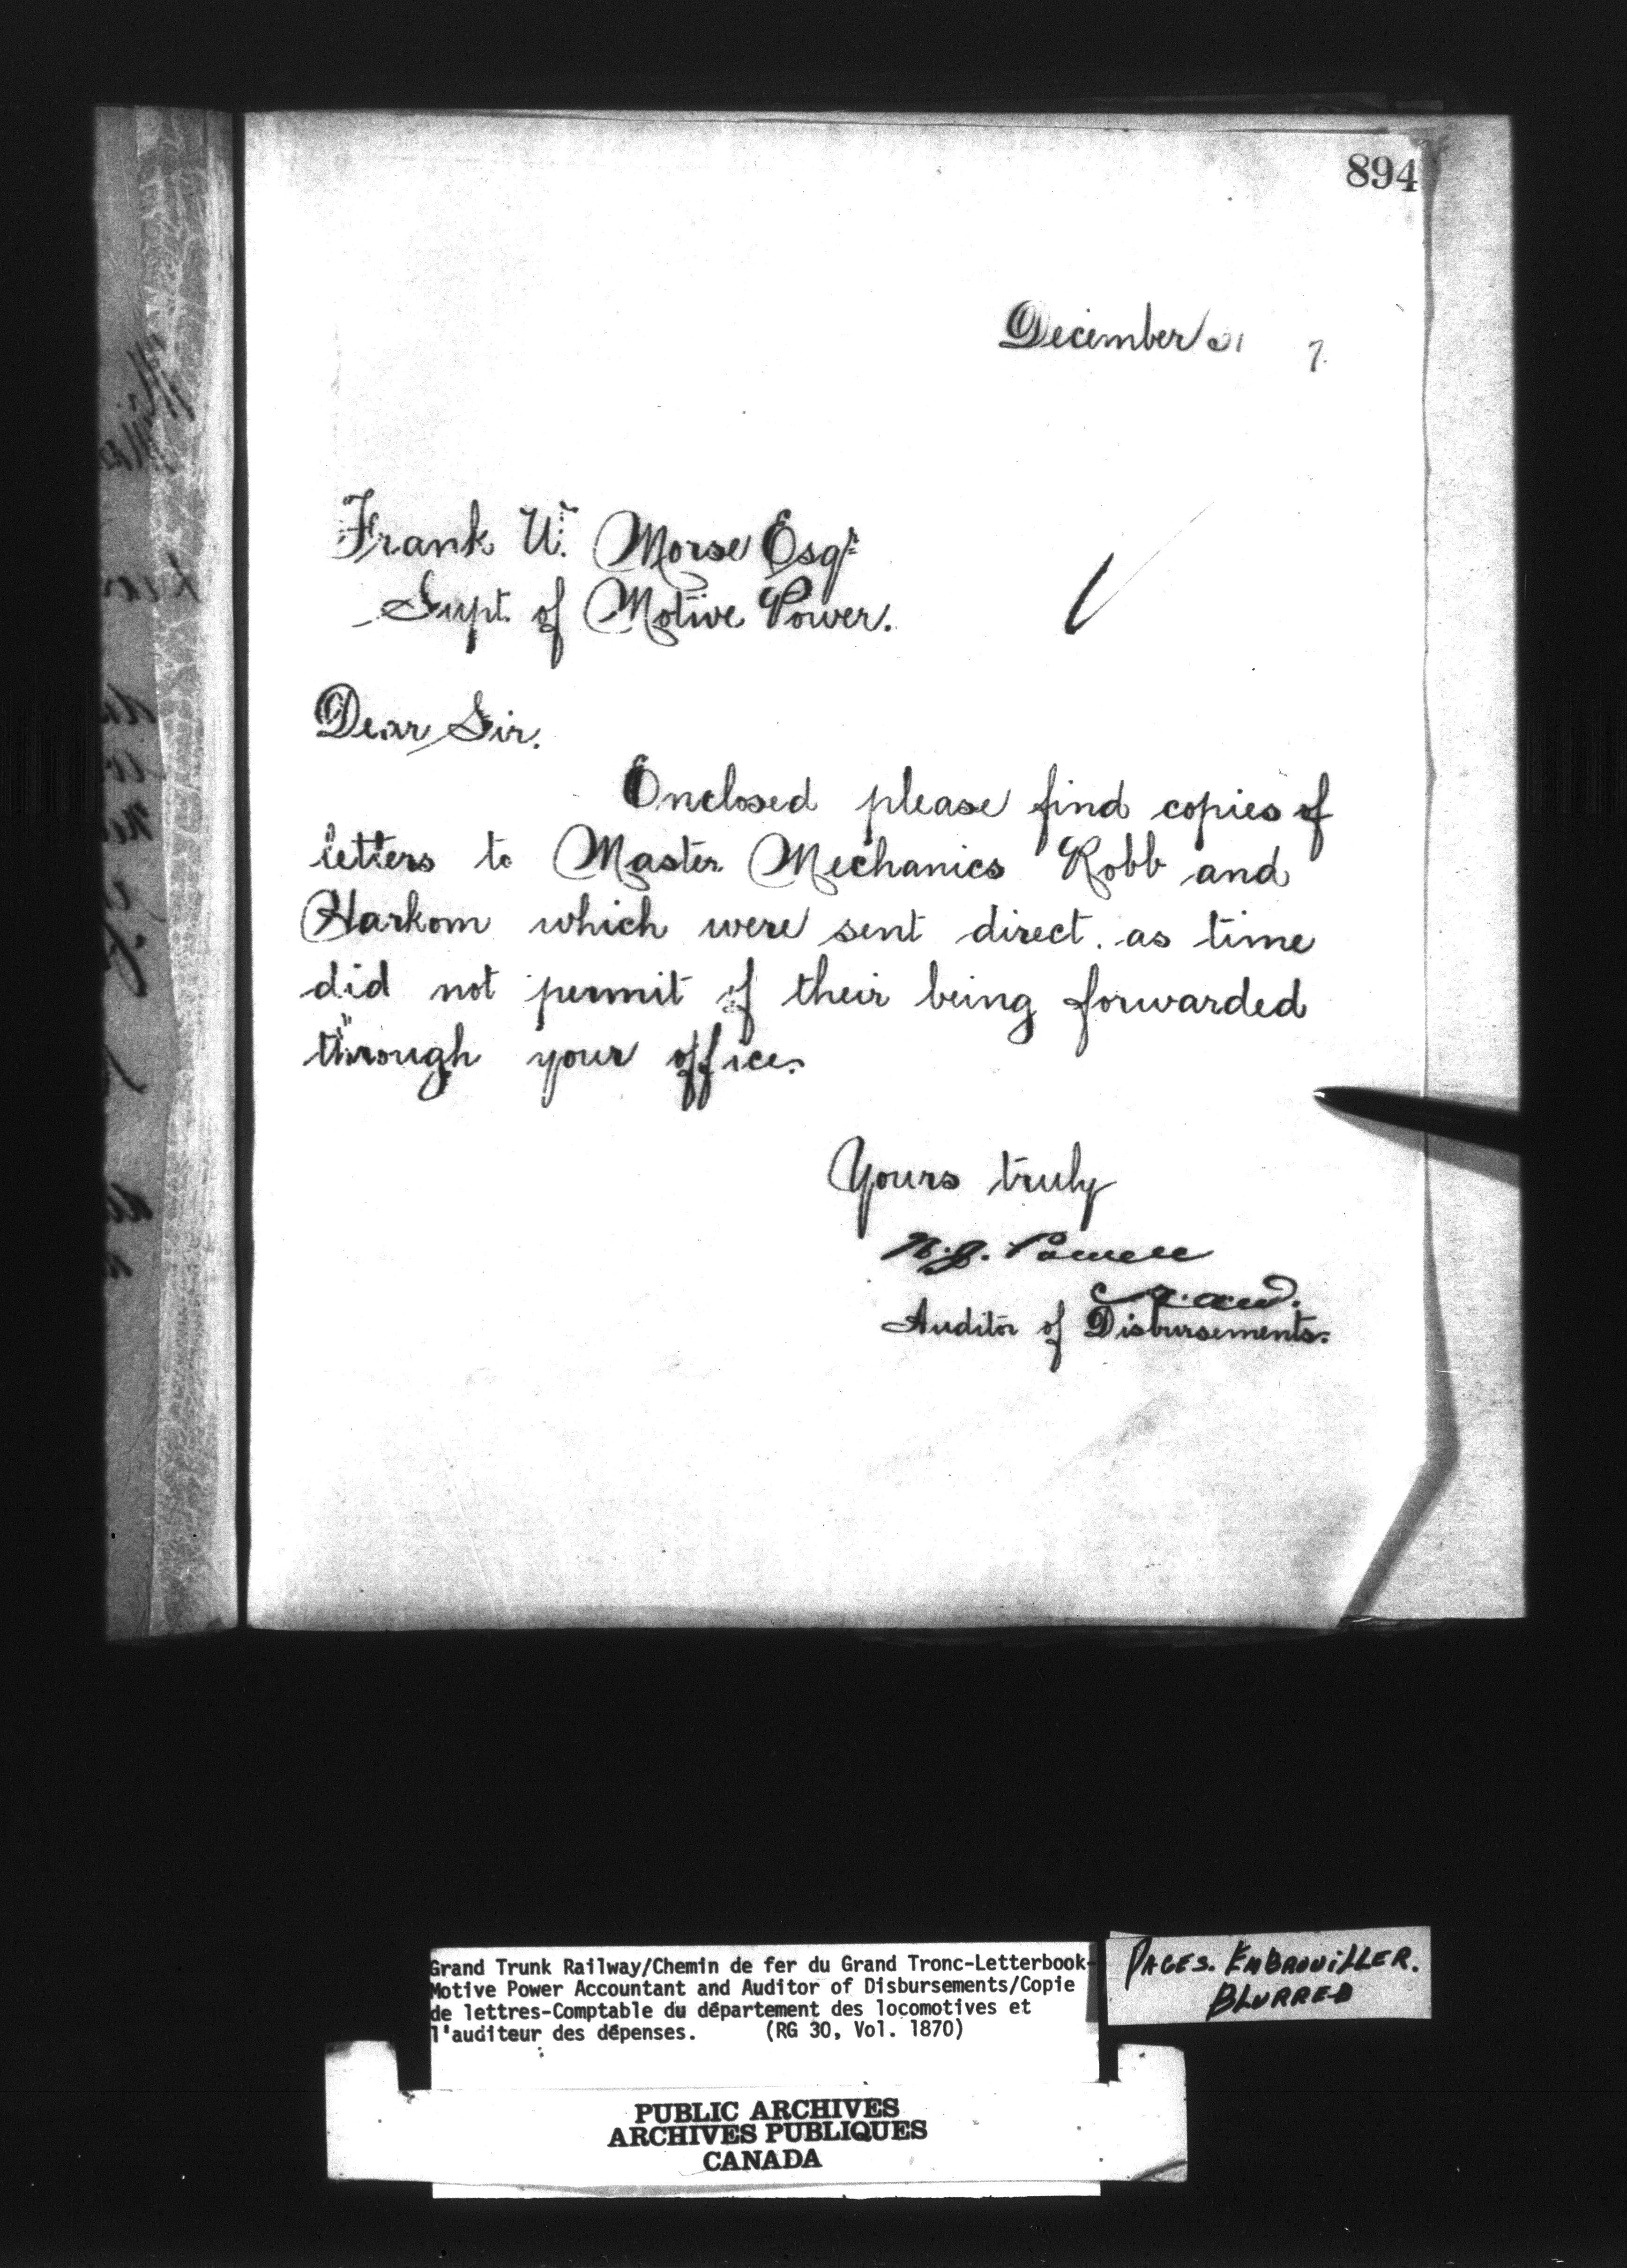 894
December 31 7.
Frank W. Morse Esqr
Supt. of Motive Power.
Dear Sir.
Enclosed please find copies of
letters to Master Mechanics Robb and
Harkom which were sent direct. as time
did not permit of their being forwarded
through your office.
Yours truly
Powell
Auditor of Disbursements.
Grand Trunk Railway/Chemin de fer du Grand Tronc-Letterbook-
Motive Power Accountant and Auditor of Disbursements/Copie
de lettres-Comptable du département des locomotives et
l'auditeur des dépenses. (RG 30, Vol. 1870)
PAGES. EMBROUILLER.
BLURRED
PUBLIC ARCHIVES
ARCHIVES PUBLIQUES
CANADA